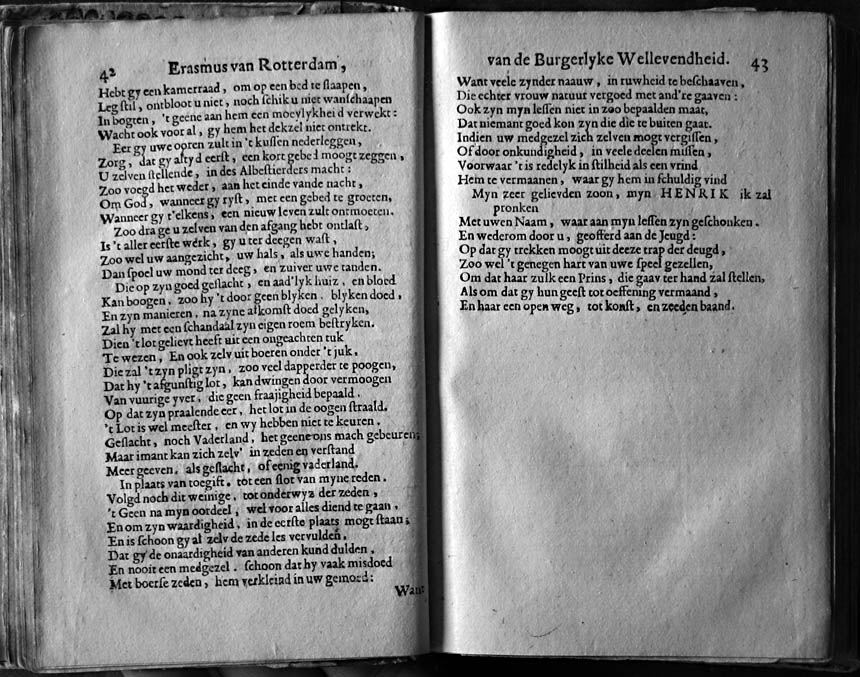 42 Erasmus van Rotterdam,
Hebt gy een kamerraad, om op een bed te slaapen,
Leg stil, ontbloot u niet, noch schik u niet wanschaapen
In bogten, 't geene aan hem een moeylykheid verwekt:
Wacht ook voor al, gy hem het dekzel niet ontrekt.
Eer gy uwe ooren zult in 't kussen nederleggen,
Zorg, dat gy altyd eerst, een kort gebed moogt zeggen,
U zelven stellende, in des Albestierders macht:
Zoo voegd het weder, aan het einde van de nacht,
Om God, wanneer gy ryst, met een gebed te groeten,
Wanneer gy t'elkens, een nieuw leven zult ontmoeten.
Zoo dra ge u zelven van den afgang hebt ontlast,
Is 't aller eerste werk, gy u ter deegen wast,
Zoo wel uw aangezicht, uw hals, als uwe handen;
Dan spoel uw mond ter deeg, en zuiver uwe tanden.
Die op zyn goed geslacht, en aad'lyk huiz, en bloed
Kan boogen, zoo hy 't door geen blyken, blyken doed,
En zyn manieren, na zyne afkomst doed gelyken,
Zal hy met een schandaal zyn eigen roem bestryken.
Dien 't lot gelievt heeft uit een ongeachten tuk
Te wezen, En ook zelv uit boeren onder 't juk.
Die zal 't zyn pligt zyn, zoo veel dapperder te poogen,
Dat hy 't afgunstig lot, kan dwingen door vermoogen
Van vuurige yver, die geen fraajigheid bepaald.
Op dat zyn praalende eer, het lot in de oogen straald.
't Lot is wel meester, en wy hebben niet te keuren,
Geslacht, noch Vaderland, het geene ons mach gebeuren;
Maar imant kan zich zelv' in zeden en verstand
Meer geeven, als geslacht, of eenig vaderland.
In plaats van toegift, tot een slot van myne reden.
Volgd noch dit weinige, tot onderwyz der zeden,
't Geen na myn oordeel, wel voor alles diend te gaan,
En om zyn waardigheid, in de eerste plaats mogt staan;
En is schoon gy al zelv de zede les vervulden,
Dat gy de onaardigheid van anderen kund dulden,
En nooit een medgezel, schoon dat hy vaak misdoed
Met boerse zeden, hem verkleind in uw gemoed:
Want
van de Burgerlyke Wellevendheid. 43
Want veele zynder naauw, in ruwheid te beschaaven,
Die echter vrouw natuur vergoed met and're gaaven:
Ook zyn myn lessen niet in zoo bepaalden maat,
Dat niemant goed kon zyn die die te buiten gaat.
Indien uw medgezel zich zelven mogt vergissen,
Of door onkundigheid, in veele deelen missen,
Voorwaar 't is redelyk in stilheid als een vrind
Hem te vermaanen, waar gy hem in schuldig vind
Myn zeer gelievden zoon, myn HENRIK ik zal
pronken
Met uwen Naam, waar aan myn lessen zyn geschonken.
En wederom door u, geofferd aan de Jeugd:
Op dat gy trekken moogt uit deeze trap der deugd,
Zoo wel 't genegen hart van uwe speel gezellen,
Om dat haar zulk een Prins, die gaav ter hand zal stellen,
Als om dat gy hun geest tot oeffening vermaand,
En haar een open weg, tot konst, en zeeden baand.